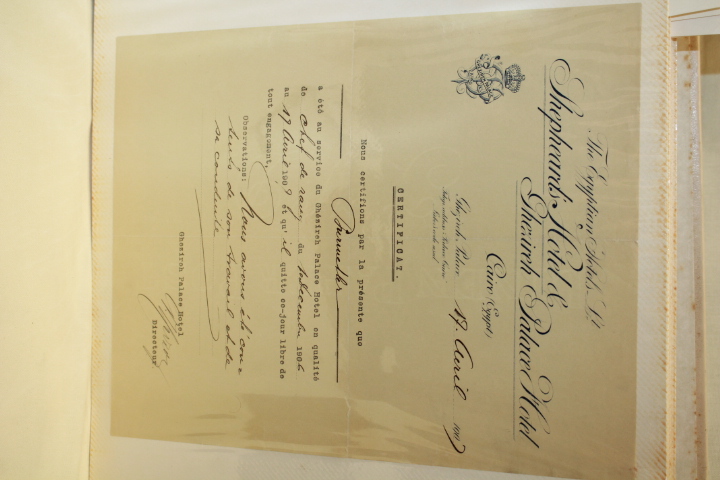 The Egyptian Hotels Ld
Shepheard's Hotel &
Ghezireh Palace Hotel
Cairo (Egypt)
Ghezireh Palace 17 Avril 1907
CERTIFICAT.
Nous certifions par la présente que
Burmester
a été au service du Ghézireh Palace Hotel en qualité
de Chef de rang du 1 décembre 1906
au 17 Avril 1907 et qu'il quitte ce-jour libre de
tout engagement,
Observations: Nous avons été con-
tents de son travail et de
sa conduite
Ghézireh Palace Hotel
Directeur